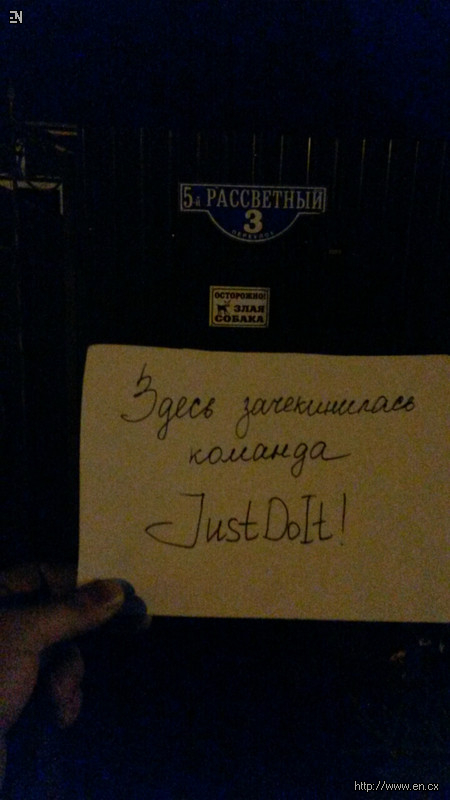 EN
5й РАССВЕТНЫЙ
3
ПЕРЕУЛОК
ОСТОРОЖНО!
ЗЛАЯ
СОБАКА
Здесь зачекинилась
команда
JustDoIt!
http://www.en.cx